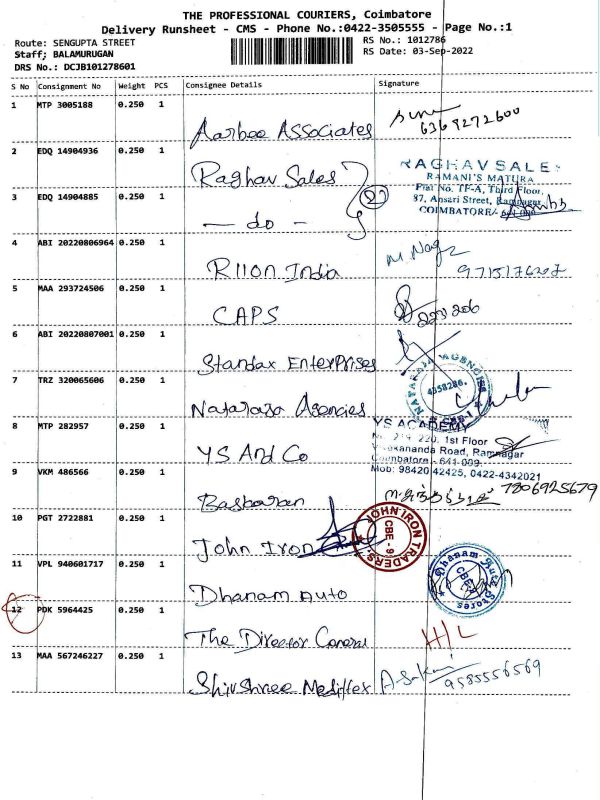 THE PROFESSIONAL COURIERS, Coimbatore
Delivery Runsheet - CMS - Phone No.:0422-3505555 - Page No.:1
Route: SENGUPTA STREET
RS No.: 1012786
Staff; BALAMURUGAN
RS Date: 03-Sep-2022
DRS No.: DCJB101278601
S No Consignment No Weight PCS Consignee Details Signature
1 MTP 3005188 0.250 1
Aarbee Associates
2 EDQ 14904936 0.250 1
Raghav Sales
RAGHAV SALES
RAMANI'S MATURA
Plat No. TF-A, Third Floor,
87, Ansari Street, Ramnagar
COIMBATORE-
3 EDQ 14904885 0.250 1
- do -
4 ABI 20220806964 0.250 1
RIION India
5 MAA 293724506 0.250 1
CAPS
6 ABI 20220807001 0.250 1
Standax Enterprises
7 TRZ 320065606 0.250 1
Nataraja Agencies
NATARAJA AGENCIES
4358286.
CBE-1
8 MTP 282957 0.250 1
YS And Co
YS ACADEMY
220, 1st Floor
Vivekananda Road, Ramnagar
Coimbatore - 641 009.
Mob: 98420 42425, 0422-4342021
9 VKM 486566 0.250 1
Basbaran
7806925679
10 PGT 2722881 0.250 1
John Iron
JOHN IRON TRADERS,
CBE - 9
11 VPL 940601717 0.250 1
Dhanam Auto
Dhanam Auto Stores
12 PDK 5964425 0.250 1
The Director General
H/L
13 MAA 567246227 0.250 1
Shivshree Mediflex
9585556569